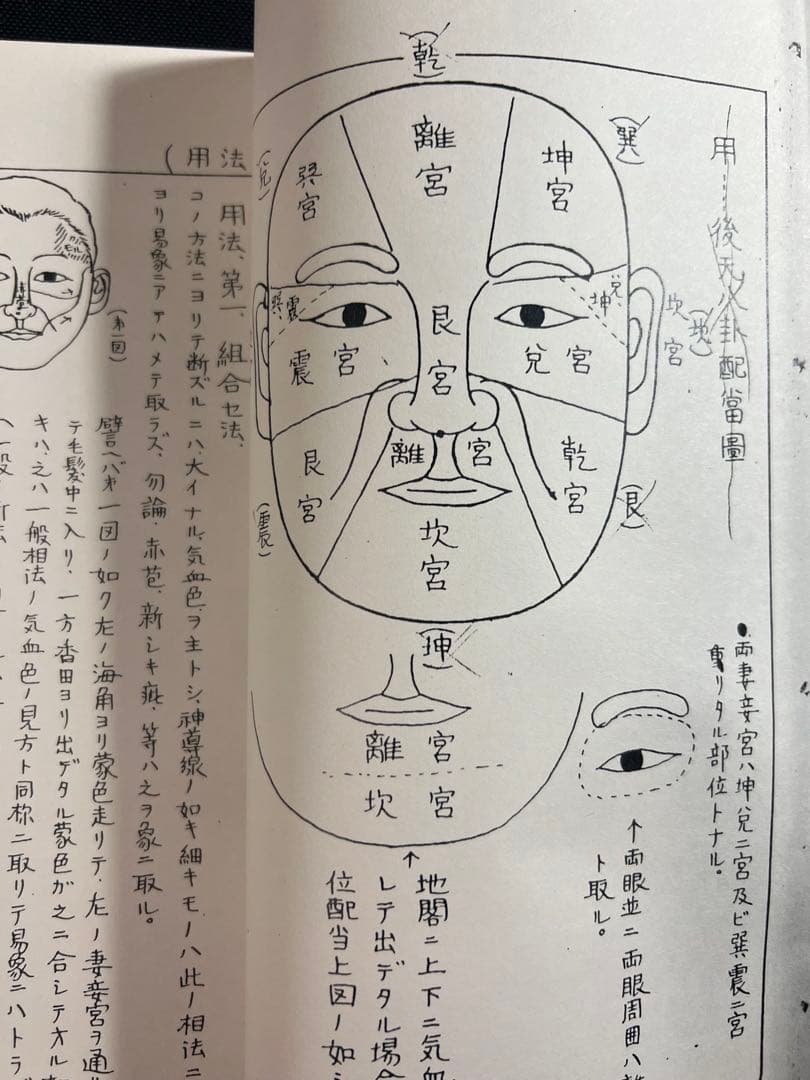 用後天八卦配當圖
(乾)
(巽)
(兌)
離宮
坤宮
巽宮
兌
坤
巽
震
坎宮
(坎)
艮宮
兌宮
震宮
離宮
乾宮
艮宮
(艮)
(震)
坎宮
(坤)
離宮
坎宮
●両妻妾宮ハ坤兌二宮及ビ巽震二宮
重リタル部位トナル。
↑両眼並ニ両眼周囲ハ
ト取ル。
↑
地閣ニ上下ニ気血
レテ出デタル場合
位配当上図ノ如シ
(用法
用法、第一、組合セ法、
コノ方法ニヨリテ断ズルニハ、大イナル気血色ヲ主トシ、神導線ノ如キ細キモノハ此ノ相法ニ
ヨリ易象ニアテハメテ取ラズ、勿論、赤苞、新シキ疵、等ハ之ヲ象ニ取ル。
譬ヘバ第一図ノ如ク左ノ海角ヨリ蒙色走リテ、左ノ妻妾宮ヲ通
テ毛髪中ニ入リ、一方香田ヨリ出デタル蒙色ガ之ニ合シテオル
キハ、之ハ一般相法ノ気血色ノ見方ト同様ニ取リテ易象ニハトラ
(第一図)